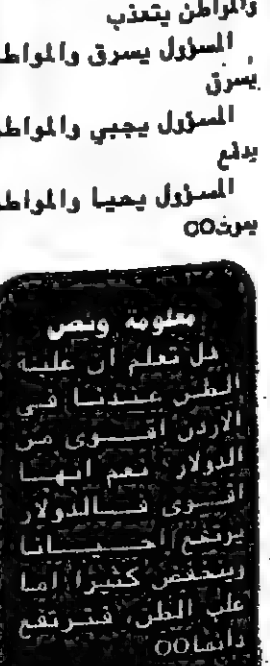 والمواطن يتعذب
المسؤول يسرق والمواطن
يُسرق
المسؤول يجبي والمواطن
يدفع
المسؤول يحيا والمواطن
يموت٥٥
معلومة ونص
هل تعلم ان علبة
الطن عندنا في
الاردن اقوى من
الدولار نعم انها
اقوى فالدولار
يرتفع احيانا
وينخفض كثيرا اما
علب الطن فترتفع
دائما٥٥